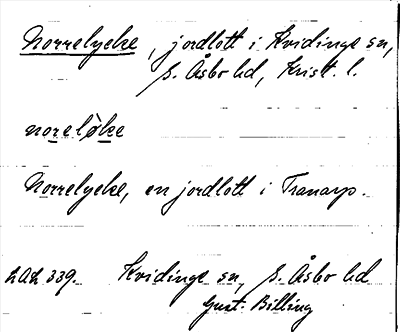 Norrelycke, jordlott i Kvidinge sn,
S. Åsbo hd, Krist. l.
noreløke
Norrelycke, en jordlott i Tranarp.
LAL 339. Kvidinge sn, S. Åsbo hd
Gust. Billing